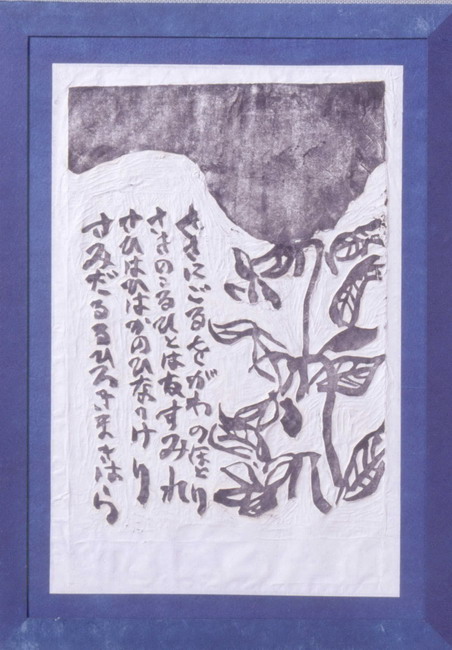 ささにごるをがわのほとり
さきのこるひとはなすみれ
さひはひはかのひなりけり
さみだるるひろきまきはら